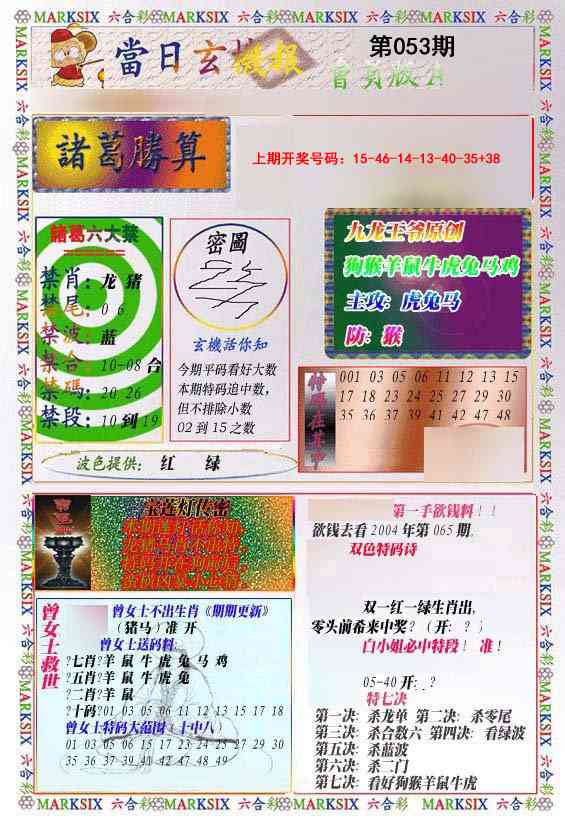 MARKSIX 六合彩 MARKSIX 六合彩 MARKSIX 六合彩 MARKSIX 六合彩
當日玄機
微报
第053期
諸葛勝算
上期开奖号码：15-46-14-13-40-35+38
諸葛六大禁
禁肖：龙 猪
禁尾：0 6
禁波：蓝
禁合：10-08 合
禁碼：20 26
禁段：10 到 19
密圖
玄機活你知
今期平码看好大数
本期特码追中数，
但不排除小数
02 到 15 之数
九龙王爷原创
狗猴羊鼠牛虎兔马鸡
主攻：虎兔马
防：猴
001 03 05 06 11 12 13 15
17 18 23 24 25 27 29 30
35 36 37 39 41 42 47 48
波色提供： 红 绿
宝莲灯传密
曾女士救世
曾女士不出生肖《期期更新》
（猪马）准 开
曾女士送码料：
?七肖?羊 鼠 牛 虎 兔 马 鸡
?五肖?羊 鼠 牛 虎 兔
?二肖?羊 鼠
?十码?01 03 05 06 11 12 13 15 17 18
曾女士特码大范围（十中八）
01 03 05 06 15 17 23 24 25 27 29 30
35 36 37 39 41 42 47 48 49
第一手欲钱料！！
欲钱去看 2004 年第 065 期。
双色特码诗
双一红一绿生肖出，
零头前希来中奖？（开：？）
白小姐必中特段！ 准！
05-40 开:.?
特七决
第一决：杀龙单 第二决：杀零尾
第三决：杀合数六 第四决：看绿波
第五决：杀蓝波
第六决：杀二门
第七决：看好狗猴羊鼠牛虎
MARKSIX 六合彩 MARKSIX 六合彩 MARKSIX 六合彩 MARKSIX 六合彩